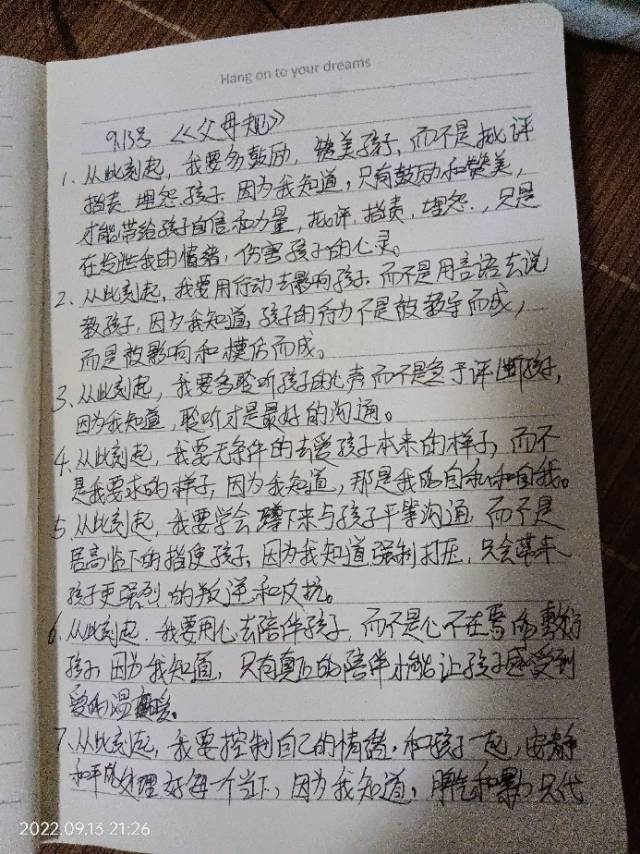 Hang on to your dreams
9.13号 《父母规》
1、从此刻起，我要多鼓励，赞美孩子，而不是批评
指责 埋怨孩子，因为我知道，只有鼓励和赞美，
才能带给孩子自信和力量，批评，指责，埋怨，只是
在发泄我的情绪，伤害孩子的心灵。
2、从此刻起，我要用行动去影响孩子，而不是用言语去说
教孩子，因为我知道，孩子的行为不是被教导而成，
而是被影响和模仿而成。
3、从此刻起，我要多聆听孩子的心声而不是急于评断孩子，
因为我知道，聆听才是最好的沟通。
4、从此刻起，我要无条件的去爱孩子本来的样子，而不
是我要求的样子，因为我知道，那是我的自私和自我。
5、从此刻起，我要学会蹲下来与孩子平等沟通，而不是
居高临下的指使孩子，因为我知道强制打压，只会带来
孩子更强烈的叛逆和反抗。
6、从此刻起，我要用心去陪伴孩子，而不是心不在焉的敷衍
孩子，因为我知道，只有真正的陪伴才能让孩子感受到
爱的温暖。
7、从此刻起，我要控制自己的情绪，和孩子一起，安静
和平处理好每一个当下，因为我知道，脾气和暴力只代
2022.09.13 21:26